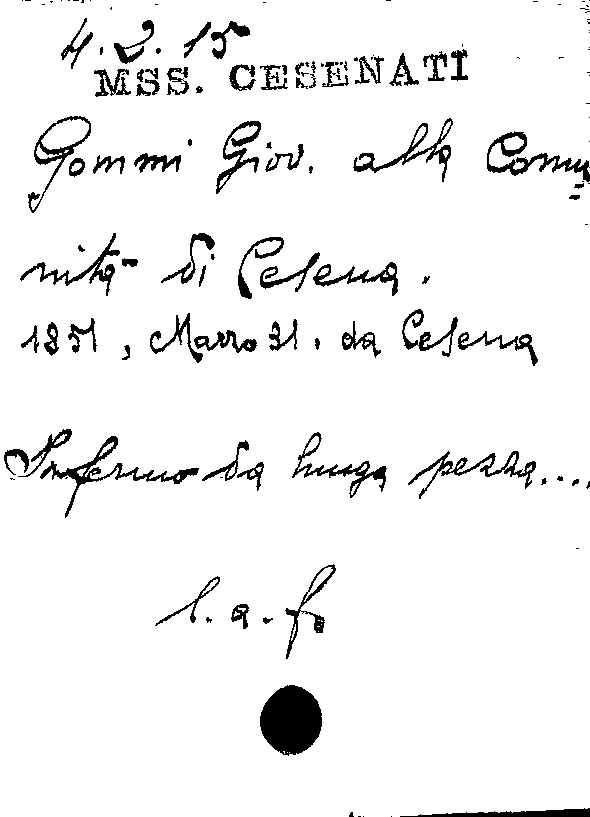 4.2.15
MSS. CESENATI
Gommi Giov. alla Comu=
nità di Cesena.
1851, Marzo 31. da Cesena
Infermo da lunga pezza....
l.a.f.